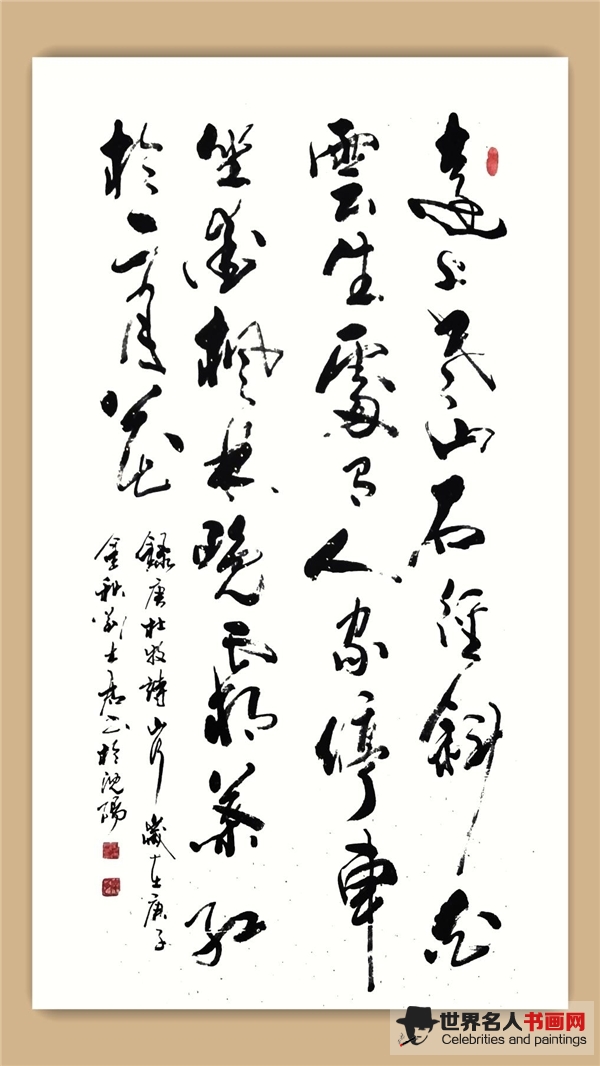 遠上寒山石徑斜白
雲生處有人家停車
坐愛楓林晚霜葉紅
於二月花
錄唐杜牧詩山行 歲在庚子
金秋劉士於沈陽
世界名人书画网
Celebrities and paintings